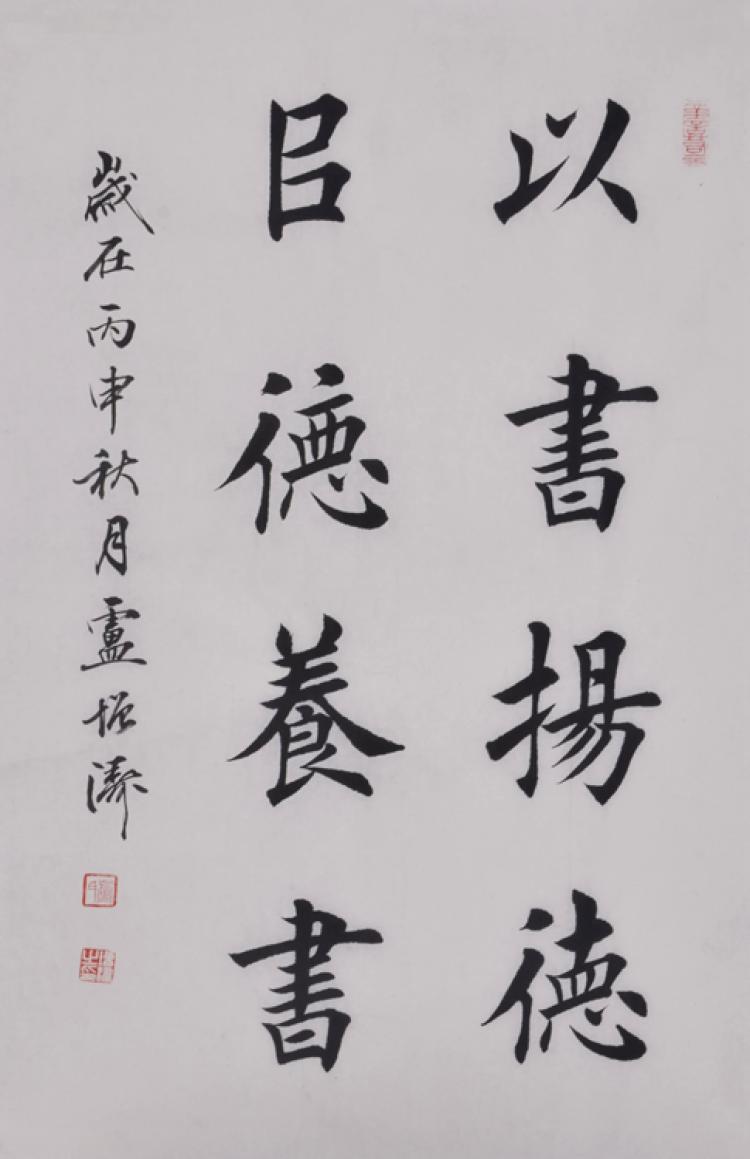 以書揚德
㠯德養書
歲在丙申秋月盧增濤